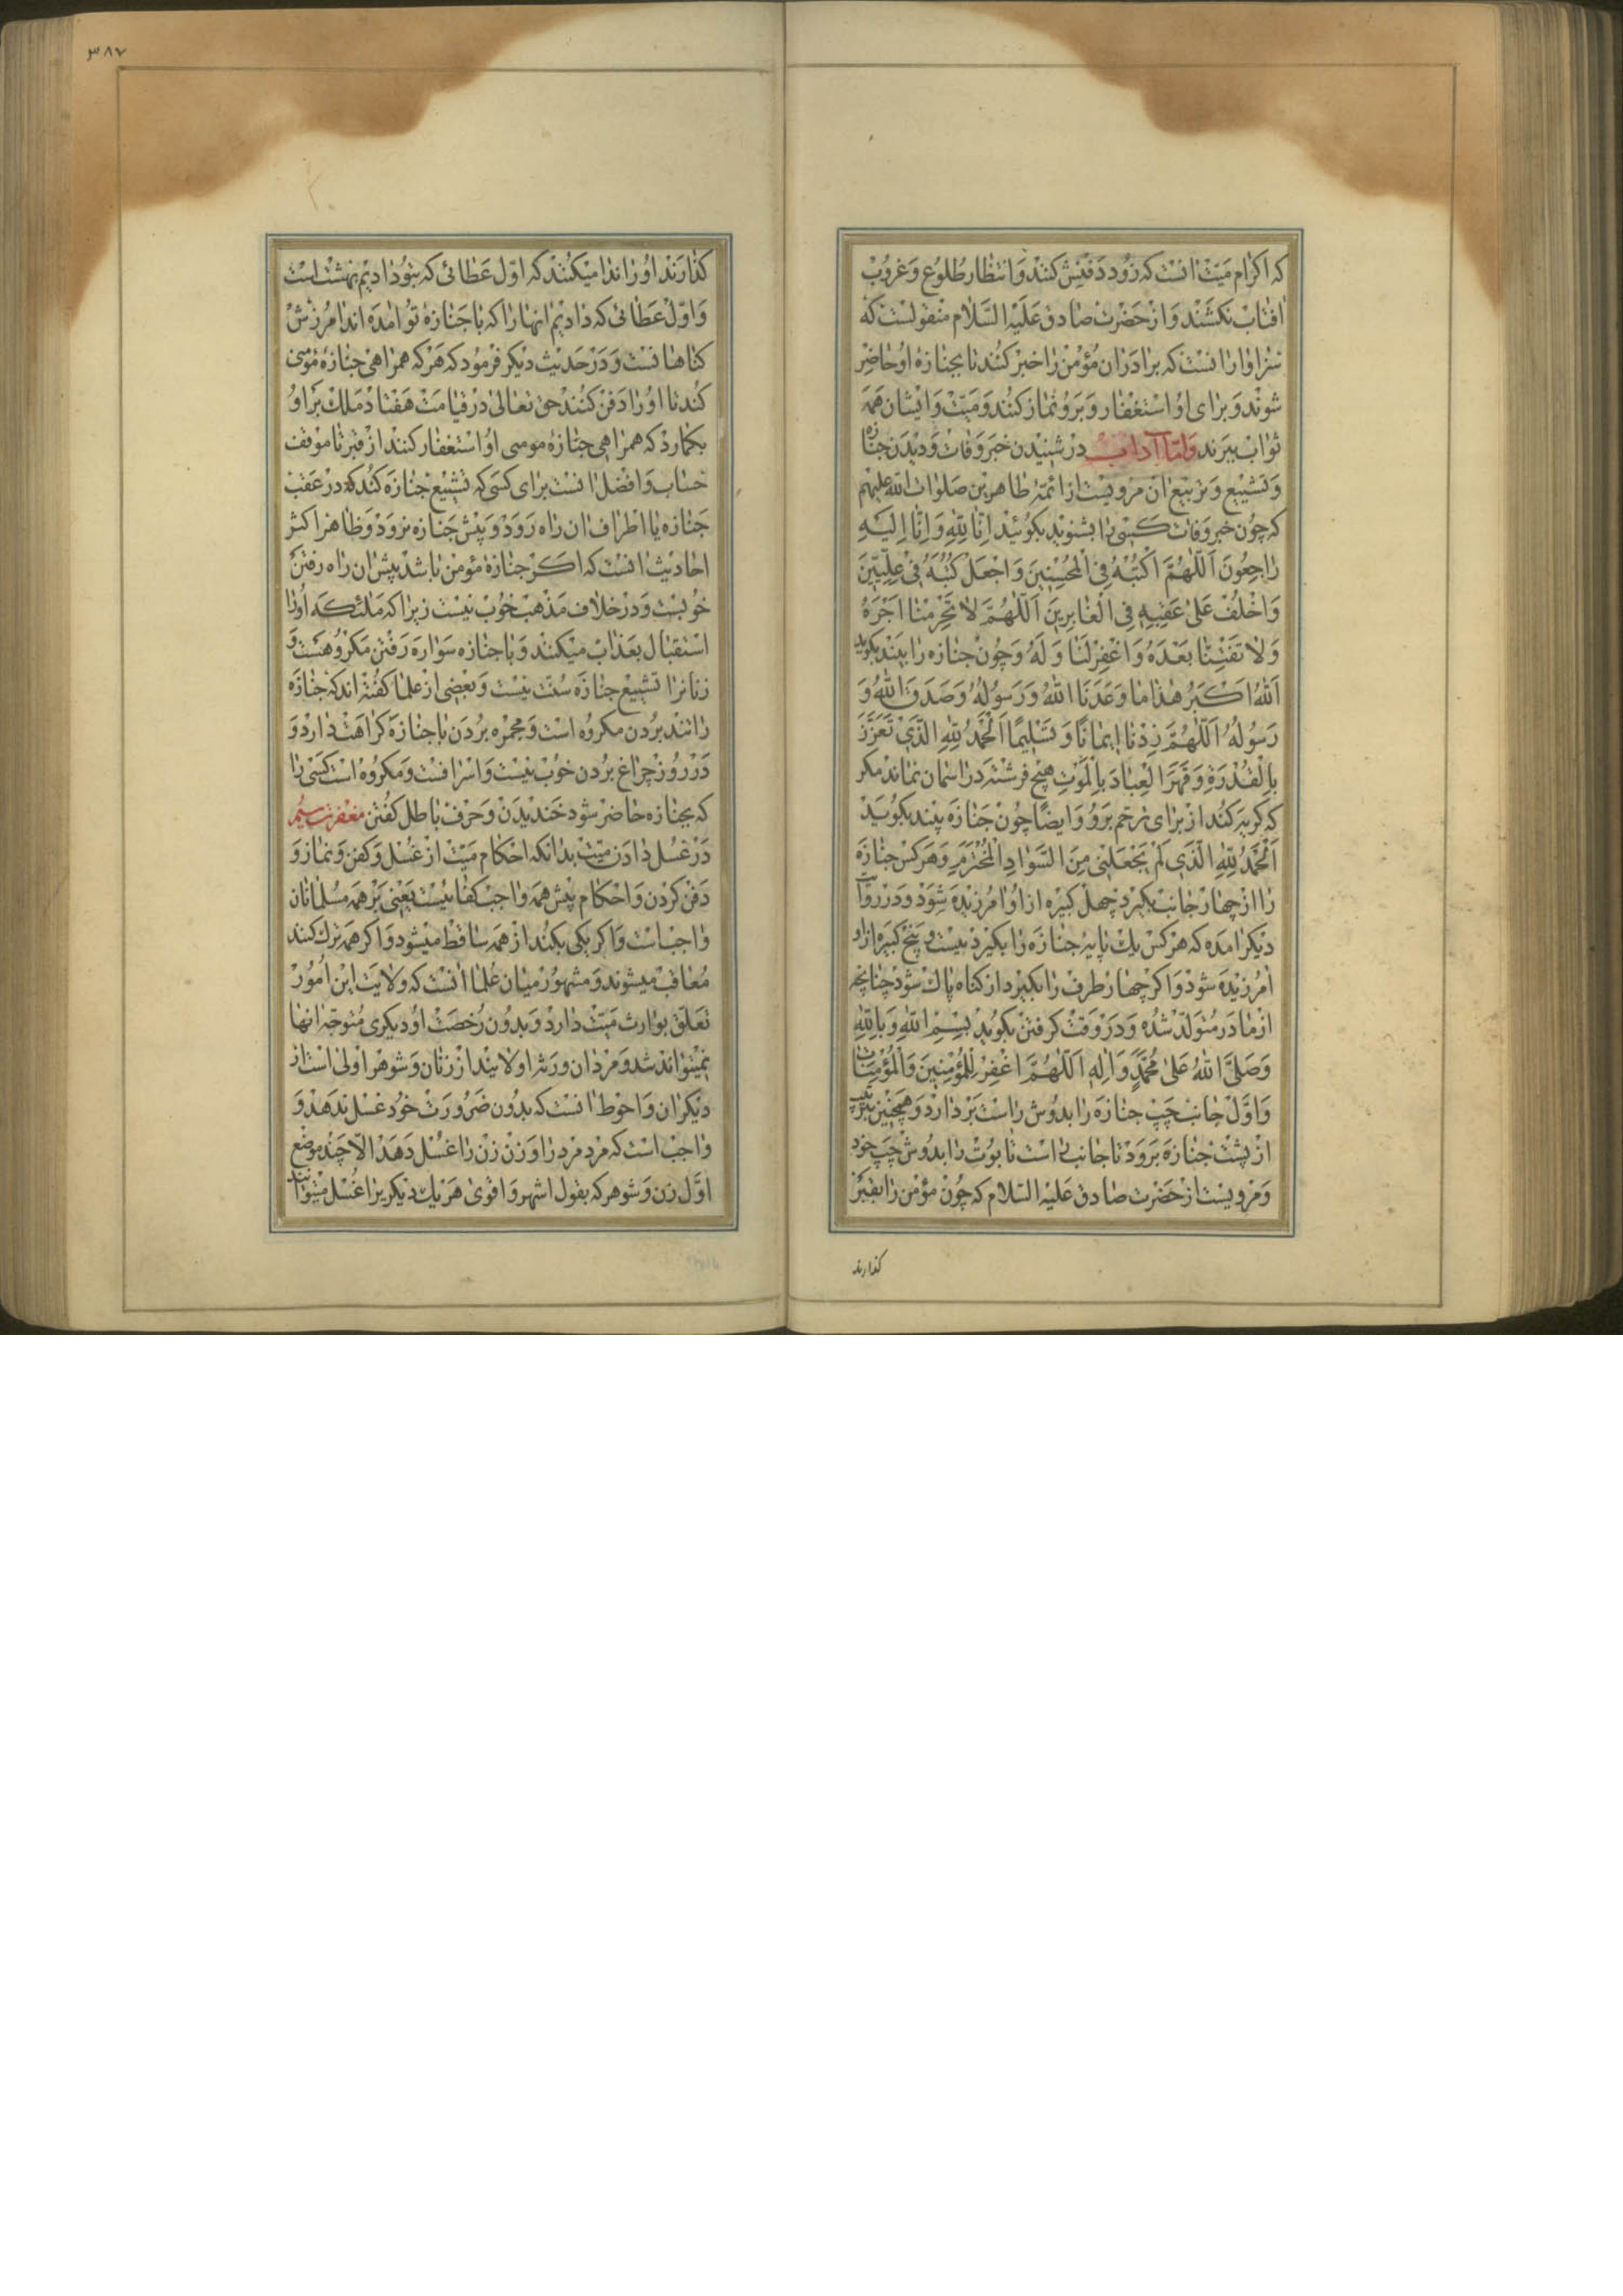 که اکرام میّت انست که زود دفنش کنند و انتظار طلوع و غروب
افتاب نکشند و از حضرت صادق علیه السّلام منقولست که
سزاوار انست که برادران مؤمن را خبر کنند تا بجنازهٔ او حاضر
شوند و برای او استغفار و بر او نماز کنند و میّت و ایشان همه
ثواب ببرند و امّا آداب در شنیدن خبر وفات و دیدن جنازه
و تشییع و تربیع ان مرویست از ائمّهٔ طاهرین صلوات اللّه علیهم
که چون خبر وفات کسی را بشنوید بکوئید اِنّا لِلّهِ وَ اِنّا اِلَیهِ
راجِعُونَ اَللّهُمَّ اکْتُبْهُ فِی الْمُحْسِنِینَ وَ اجْعَلْ کُتُبَهُ فِی عِلِّیّینَ
وَ اخْلُفْ عَلی عَقِبِهِ فِی الْغابِرِینَ اَللّهُمَّ لا تَحْرِمْنا اَجْرَهُ
وَ لا تَفْتِنّا بَعْدَهُ وَ اغْفِرْ لَنا وَ لَهُ و چون جنازه را بینند بکوید
اَللّهُ اَکْبَرُ هٰذا ما وَعَدَنَا اللّهُ وَ رَسُولُهُ وَ صَدَقَ اللّهُ وَ
رَسُولُهُ اَللّهُمَّ زِدْنا اِیمانًا وَ تَسْلِیمًا اَلْحَمْدُ لِلّهِ الَّذی تَعَزَّزَ
بِالْقُدْرَةِ وَ قَهَرَ الْعِبادَ بِالْمَوْتِ هیچ فرشته در اسمان نماند مکر
که کریه کند از برای ترحّم بر او و ایضًا چون جنازه بیند بکوید
اَلْحَمْدُ لِلّهِ الَّذی لَمْ یَجْعَلْنی مِنَ السَّوادِ الْمُخْتَرَمِ و هر کس جنازه
را از چهار جانب بکیرد چهل کبیره از او امرزیده شود و در روایت
دیکر امده که هر کس یك پایهٔ جنازه را بکیرد بیست و پنج کبیره از او
امرزیده شود و اکر چهار طرف را بکیرد از کناه پاك شود چنانچه
از مادر متولّد شده و در وقت کرفتن بکوید بِسْمِ اللّهِ وَ بِاللّهِ
وَ صَلَّی اللّهُ عَلی مُحَمَّدٍ وَ الِهِ اَللّهُمَّ اغْفِرْ لِلْمُؤْمِنِینَ وَ الْمُؤْمِناتِ
و اوّل جانب چپ جنازه را بدوش راست بردارد و همچنین
از پشت جنازه برود تا جانب راست تابوت را بدوش چپ خود
و مرویست از حضرت صادق علیه السّلام که چون مؤمن را بقبر
کذارند
۳۸۷
کذارند او را ندا میکنند که اوّل عطائی که بتو دادیم بهشت است
و اوّل عطائی که دادیم انها را که با جنازهٔ تو امده اند امرزش
کناهانست و در حدیث دیکر فرمود که هر که همراهی جنازهٔ مؤمنی
کند تا او را دفن کنند حق تعالی در قیامت هفتاد ملك بر او
بکمارد که همراهی جنازهٔ مومی او استغفار کنند از قبر تا موقف
حساب و افضل انست برای کسی که تشییع جنازه کند که در عقب
جنازه یا اطراف ان راه رود و پیش جنازه نرود و ظاهر اکثر
احادیث انست که اکر جنازهٔ مؤمن باشد پیش ان راه رفتن
خوبست و در خلاف مذهب خوب نیست زیرا که ملئکه او را
استقبال بعذاب میکنند و با جنازه سواره رفتن مکروهست و
زنانرا تشییع جنازه سنّت نیست و بعضی از علما کفته اند که جنازه
را تند بردن مکروه است و مجمره بردن با جنازه کراهت دارد و
در روز چراغ بردن خوب نیست و اسرافست و مکروه است کسی را
که بجنازه حاضر شود خندیدن و حرف باطل کفتن مغفرت سیّم
در غسل دادن میّت بدانکه احکام میّت از غسل و کفن و نماز و
دفن کردن و احکام پیش همه واجب کفائیست یعنی بر همه مسلمانان
واجبست و اکر یکی بکند از همه ساقط میشود و اکر همه ترك کنند
معاقب میشوند و مشهور میان علما انست که ولایت این امور
تعلّق بوارث میّت دارد و بدون رخصت او دیکری متوجّه انها
نمیتواند شد و مردان ورثه اولایند از زنان و شوهر اولی است از
دیکران و احوط انست که بدون ضرورت خود غسل ندهد و
واجب است که مرد مرد را و زن زن را غسل دهد الّا چند موضع
اوّل زن و شوهر که بقول اشهر و اقوی هر یك دیکریرا غسل میتوانند